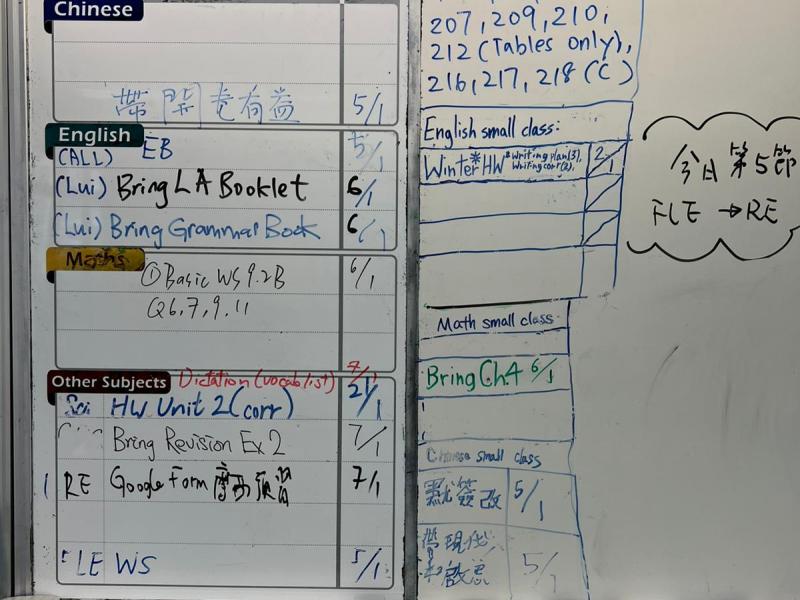 Chinese
帶開卷有益 5/1
English
(ALL) EB 5/1
(Lui) Bring LA Booklet 6/1
(Lui) Bring Grammar Book 6/1
Maths
① Basic WS 9.2B 6/1
Q6,7,9,11
Other Subjects
Dictation (vocab list) 7/1
Sci HW Unit 2 (corr) 21/1
Bring Revision Ex 2 7/1
RE Google Form 摩西預習 7/1
LE WS 5/1
207, 209, 210,
212 (Tables Only),
216, 217, 218 (C)
English small class:
Winter HW *Writing plan(3), Writing corr(2). 2/1
Math small class
Bring Ch4 6/1
Chinese small class
默簽改 5/1
現代
啟思 5/1
今日 第5節
FLE → RE